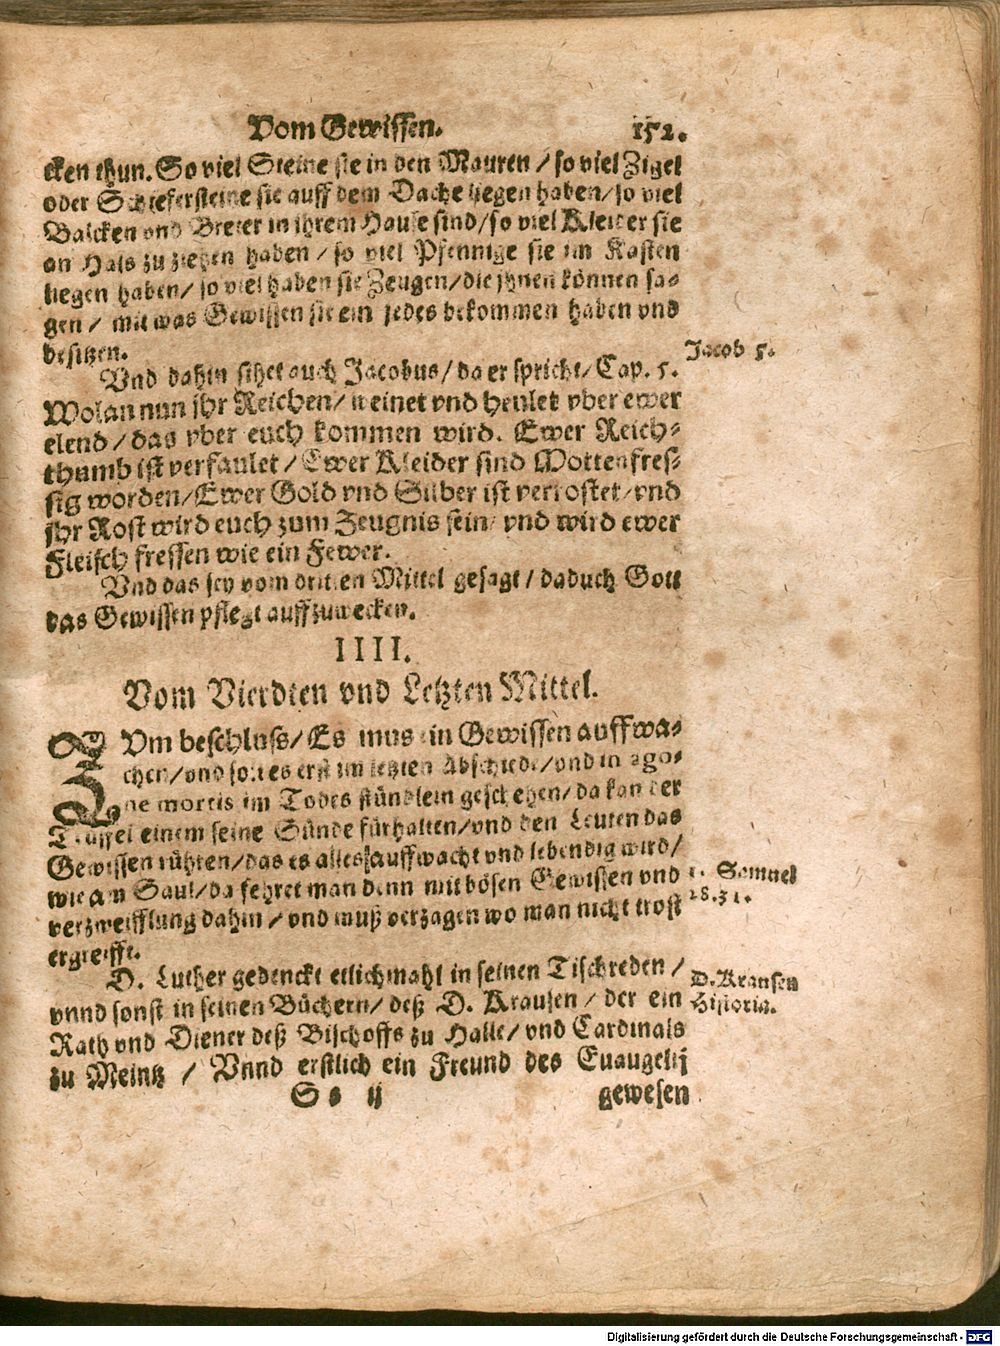 Vom Gewissen. 152.
cken thun. So viel Steine sie in den Mauren / so viel Zigel
oder Schiefersteine sie auff dem Dache liegen haben / so viel
Balcken vnd Breter in ihrem Hause sind / so viel Kleider sie
an Hals zu ziehen haben / so viel Pfennige sie im Kasten
liegen haben / so viel haben sie Zeugen / die jhnen können sa-
gen / mit was Gewissen sie ein jedes bekommen haben vnd
besitzen.
Jacob 5.
Vnd dahin sihet auch Jacobus / da er spricht / Cap. 5.
Wolan nun jhr Reichen / weinet vnd heulet vber ewer
elend / das vber euch kommen wird. Ewer Reich-
thumb ist verfaulet / Ewer Kleider sind Mottenfres-
sig worden / Ewer Gold vnd Silber ist verrostet / vnd
jhr Rost wird euch zum Zeugnis sein / vnd wird ewer
Fleisch fressen wie ein Fewer.
Vnd das sey vom dritten Mittel gesagt / daduch Gott
das Gewissen pflegt auffzuwecken.
IIII.
Vom Vierdten vnd Letzten Mittel.
ZVm beschluss / Es mus ein Gewissen auffwa-
chen / vnd solt es erst im letzten Abschiede / vnd in ago-
ne mortis im Todes stündlein geschehen / da kan der
Teuffel einem seine Sünde fürhalten / vnd den Leuten das
Gewissen rühren / das es alles auffwacht vnd lebendig wird /
wie am Saul / da fehret man denn mit bösen Gewissen vnd
1. Samuel
28. 31.
verzweifflung dahin / vnd muß verzagen wo man nicht trost
ergreifft.
D. Luther gedenckt etlichmahl in seinen Tischreden /
D. Krausen
Historia.
vnnd sonst in seinen Büchern / deß D. Krausen / der ein
Rath vnd Diener deß Bischoffs zu Halle / vnd Cardinals
zu Meintz / Vnnd erstlich ein Freund des Euaugelij
Ss ij gewesen
Digitalisierung gefördert durch die Deutsche Forschungsgemeinschaft - DFG